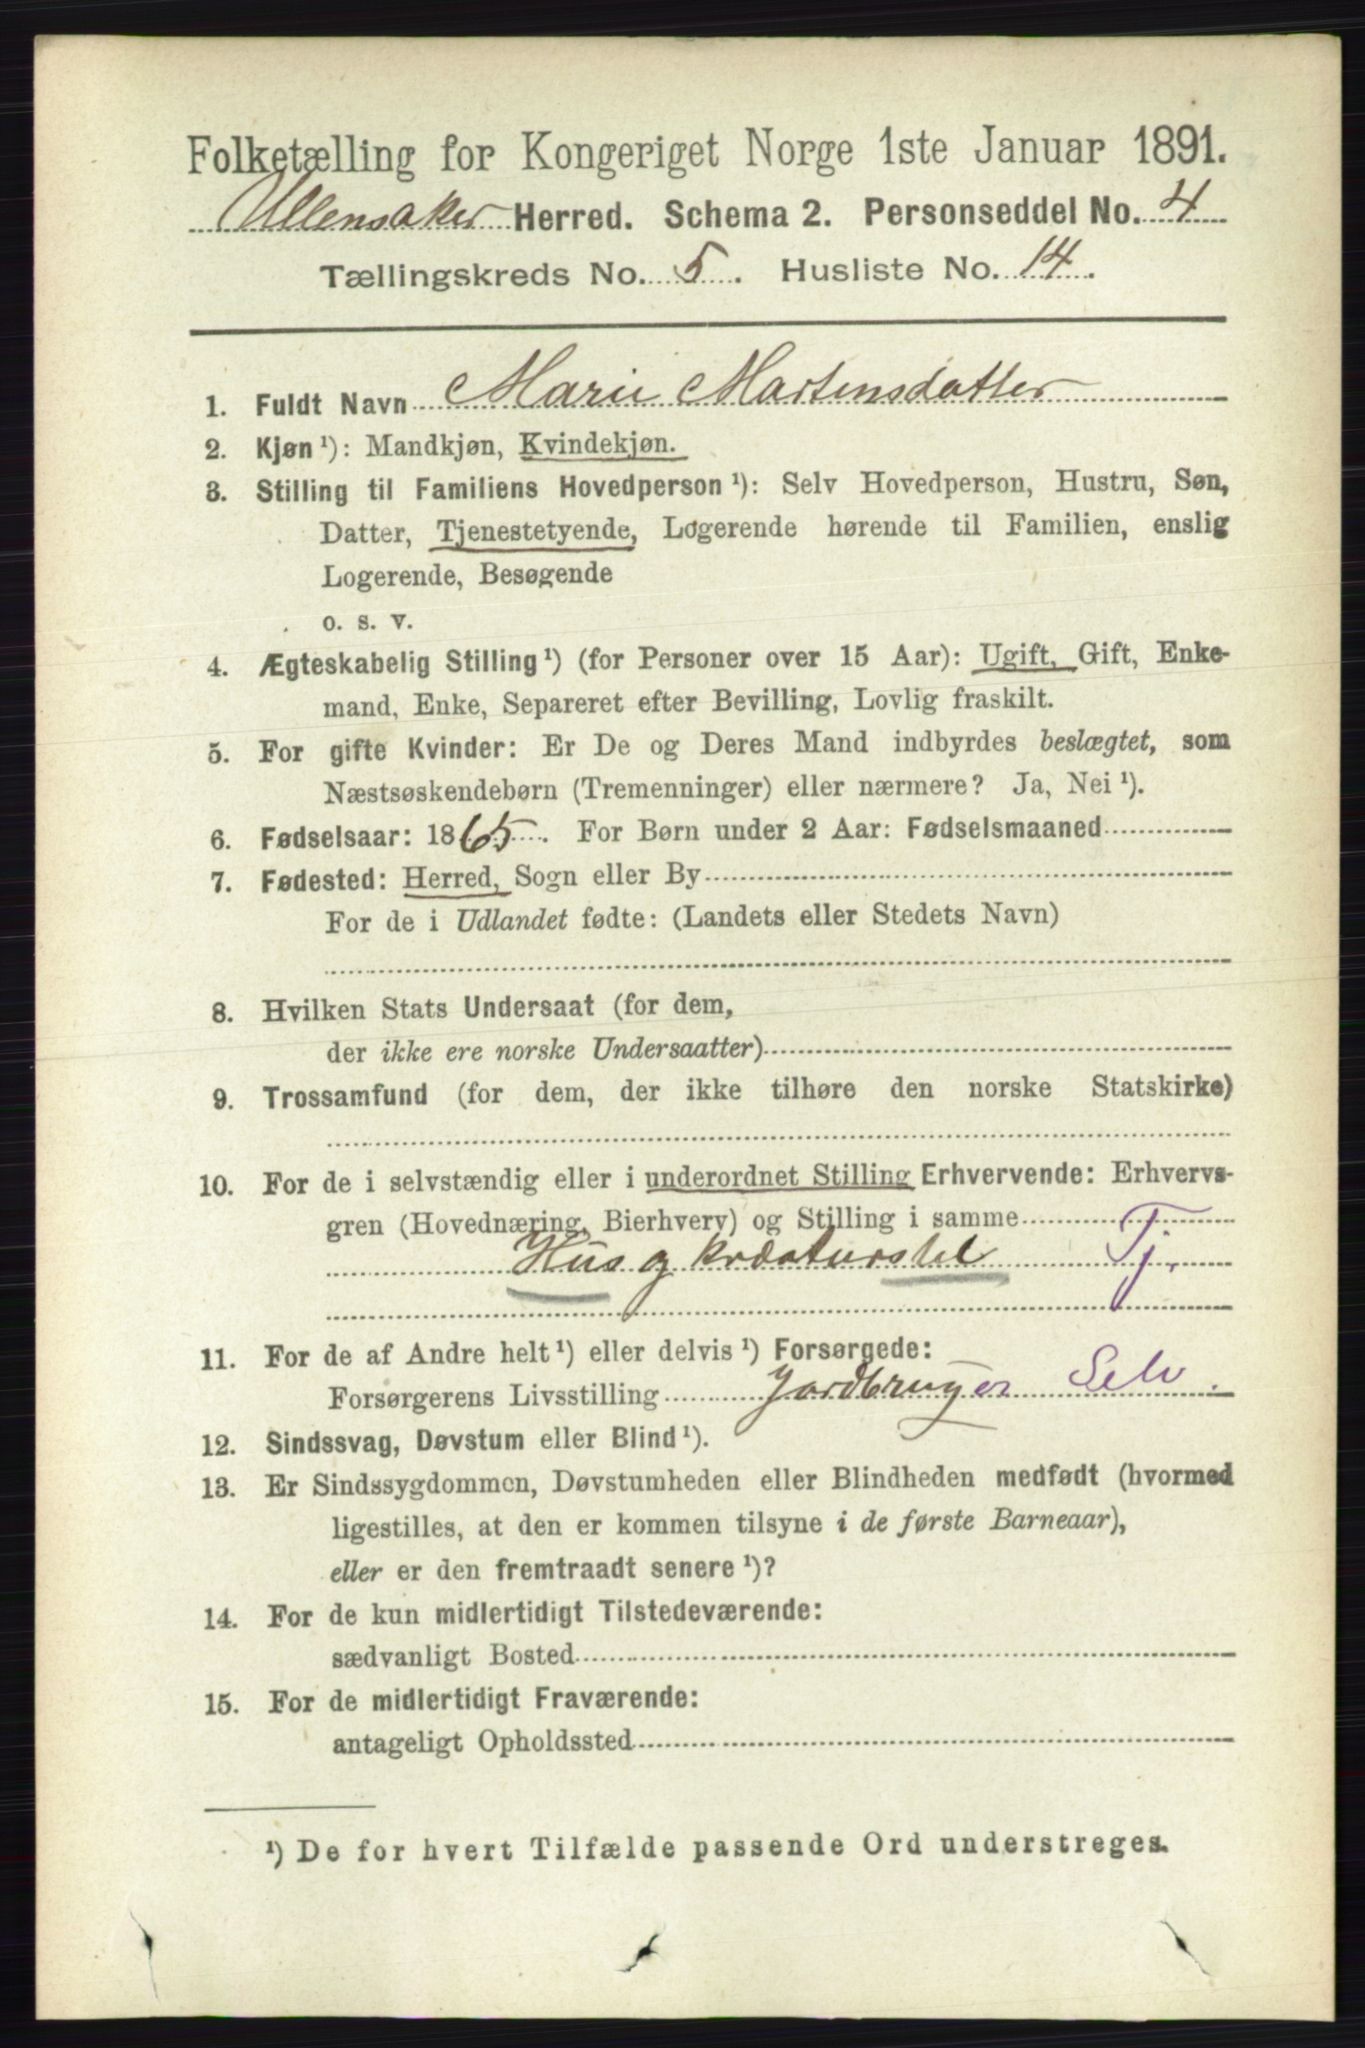 Folketælling for Kongeriget Norge 1ste Januar 1891.
Ullensaker Herred. Schema 2. Personseddel No. 4
Tællingskreds No. 5. Husliste No. 14.
1. Fuldt Navn Marie Martensdatter
2. Kjøn¹): Mandkjøn, Kvindekjøn.
3. Stilling til Familiens Hovedperson¹): Selv Hovedperson, Hustru, Søn,
Datter, Tjenestetyende, Logerende hørende til Familien, enslig
Logerende, Besøgende
o. s. v.
4. Ægteskabelig Stilling¹) (for Personer over 15 Aar): Ugift, Gift, Enke-
mand, Enke, Separeret efter Bevilling, Lovlig fraskilt.
5. For gifte Kvinder: Er De og Deres Mand indbyrdes beslægtet, som
Næstsøskendebørn (Tremenninger) eller nærmere? Ja, Nei¹).
6. Fødselsaar: 1865. For Børn under 2 Aar: Fødselsmaaned
7. Fødested: Herred, Sogn eller By
For de i Udlandet fødte: (Landets eller Stedets Navn)
8. Hvilken Stats Undersaat (for dem,
der ikke ere norske Undersaatter)
9. Trossamfund (for dem, der ikke tilhøre den norske Statskirke)
10. For de i selvstændig eller i underordnet Stilling Erhvervende: Erhvervs-
gren (Hovednæring, Bierhverv) og Stilling i samme
Hus og kreaturstel Tj.
11. For de af Andre helt¹) eller delvis¹) Forsørgede:
Forsørgerens Livsstilling Jordbruger Selv.
12. Sindssvag, Døvstum eller Blind¹).
13. Er Sindssygdommen, Døvstumheden eller Blindheden medfødt (hvormed
ligestilles, at den er kommen tilsyne i de første Barneaar),
eller er den fremtraadt senere¹)?
14. For de kun midlertidigt Tilstedeværende:
sædvanligt Bosted
15. For de midlertidigt Fraværende:
antageligt Opholdssted
¹) De for hvert Tilfælde passende Ord understreges.